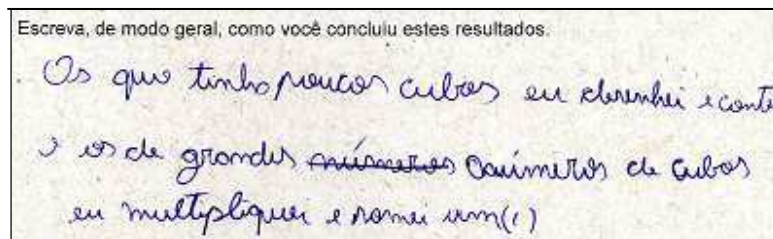 Escreva, de modo geral, como você concluiu estes resultados.
Os que tinha poucos cubos eu desenhei e conte
e os de grandes números de cubos
eu multipliquei e somei um(1)